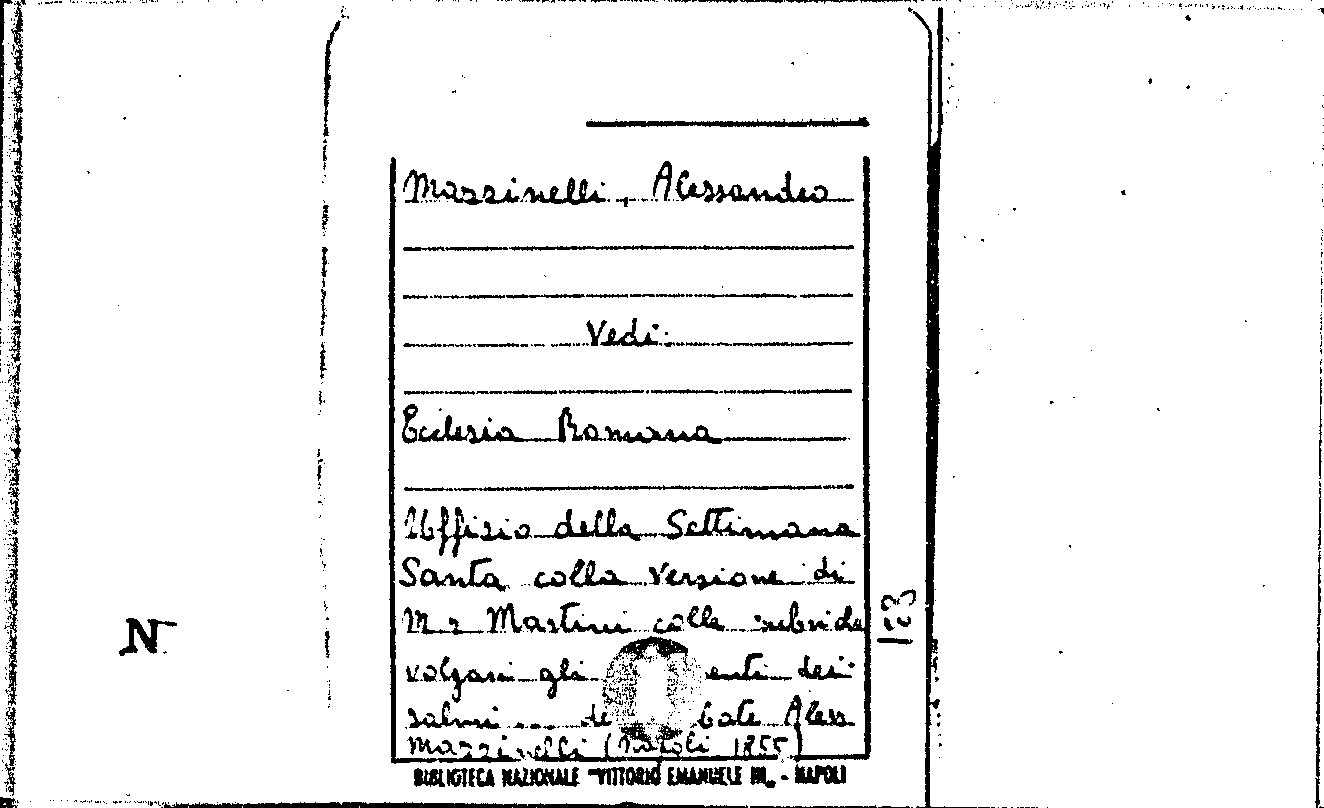 Mazzinelli, Alessandro
Vedi:
Ecclesia Romana
Uffizio della Settimana
Santa colla versione di
M.r Martini colle
volgari gli enti dei
salmi ... de bate Aless
Mazzinelli (Napoli 1855)
BIBLIOTECA NAZIONALE "VITTORIO EMANUELE III" - NAPOLI
N
123